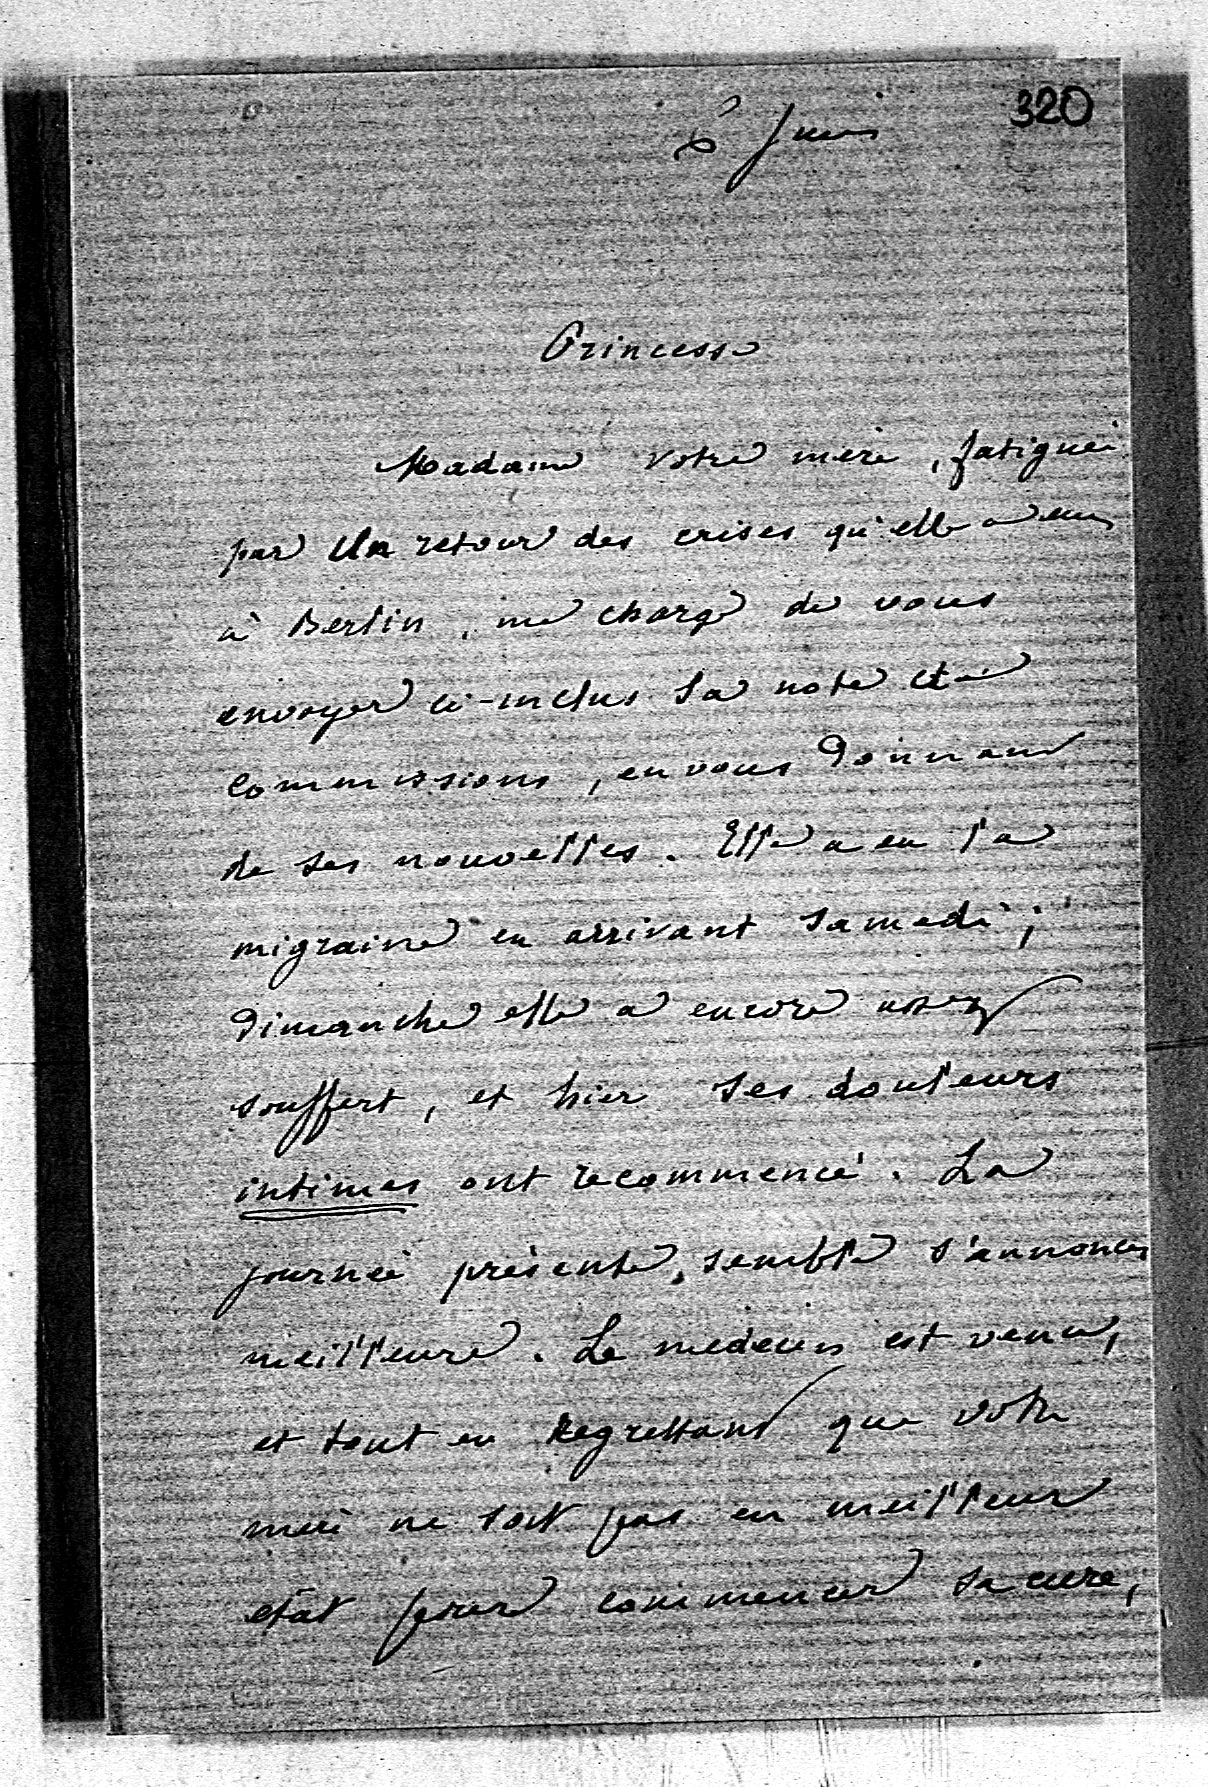 320
6 Juin
Princesse
Madame votre mère, fatiguée
par un retour des crises qu'elle a eues
à Berlin, me charge de vous
envoyer ci-inclus sa note de
commissions, en vous donnant
de ses nouvelles. Elle a eu la
migraine en arrivant samedi ;
Dimanche elle a encore assez
souffert, et hier ses douleurs
intimes ont recommencé. La
journée présente, semble s'annoncer
meilleure. Le médecin est venu,
et tout en regrettant que votre
mère ne soit pas en meilleur
état pour commencer sa cure,